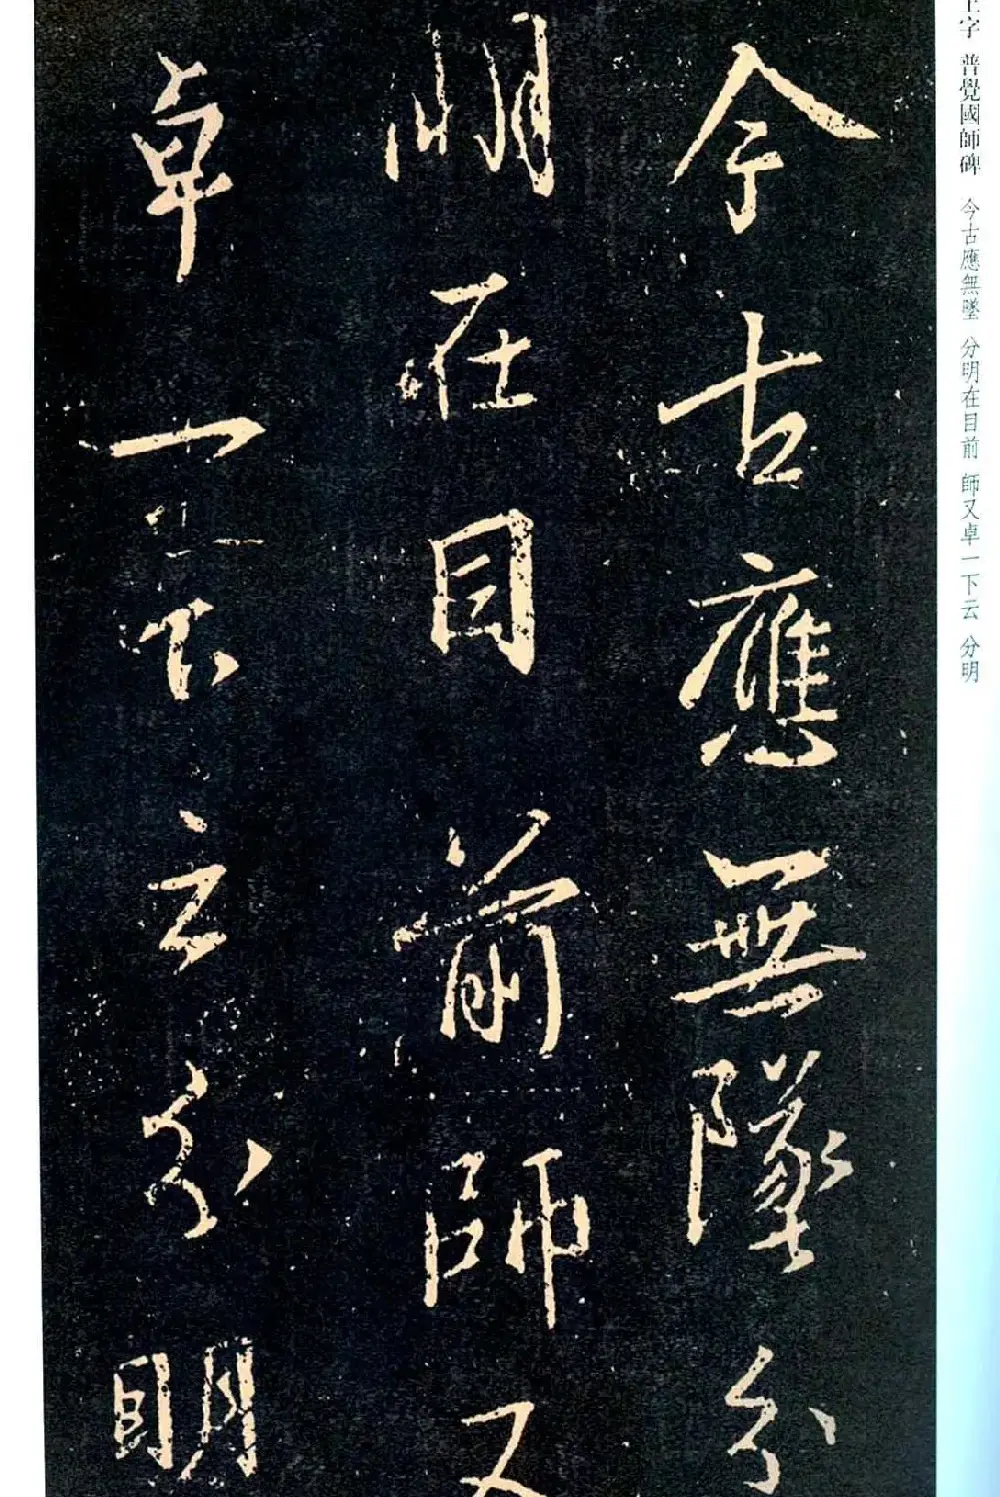 今古應無墜分
明在目前師又
卓一下云分明
王字 普覺國師碑 今古應無墜 分明在目前 師又卓一下云 分明